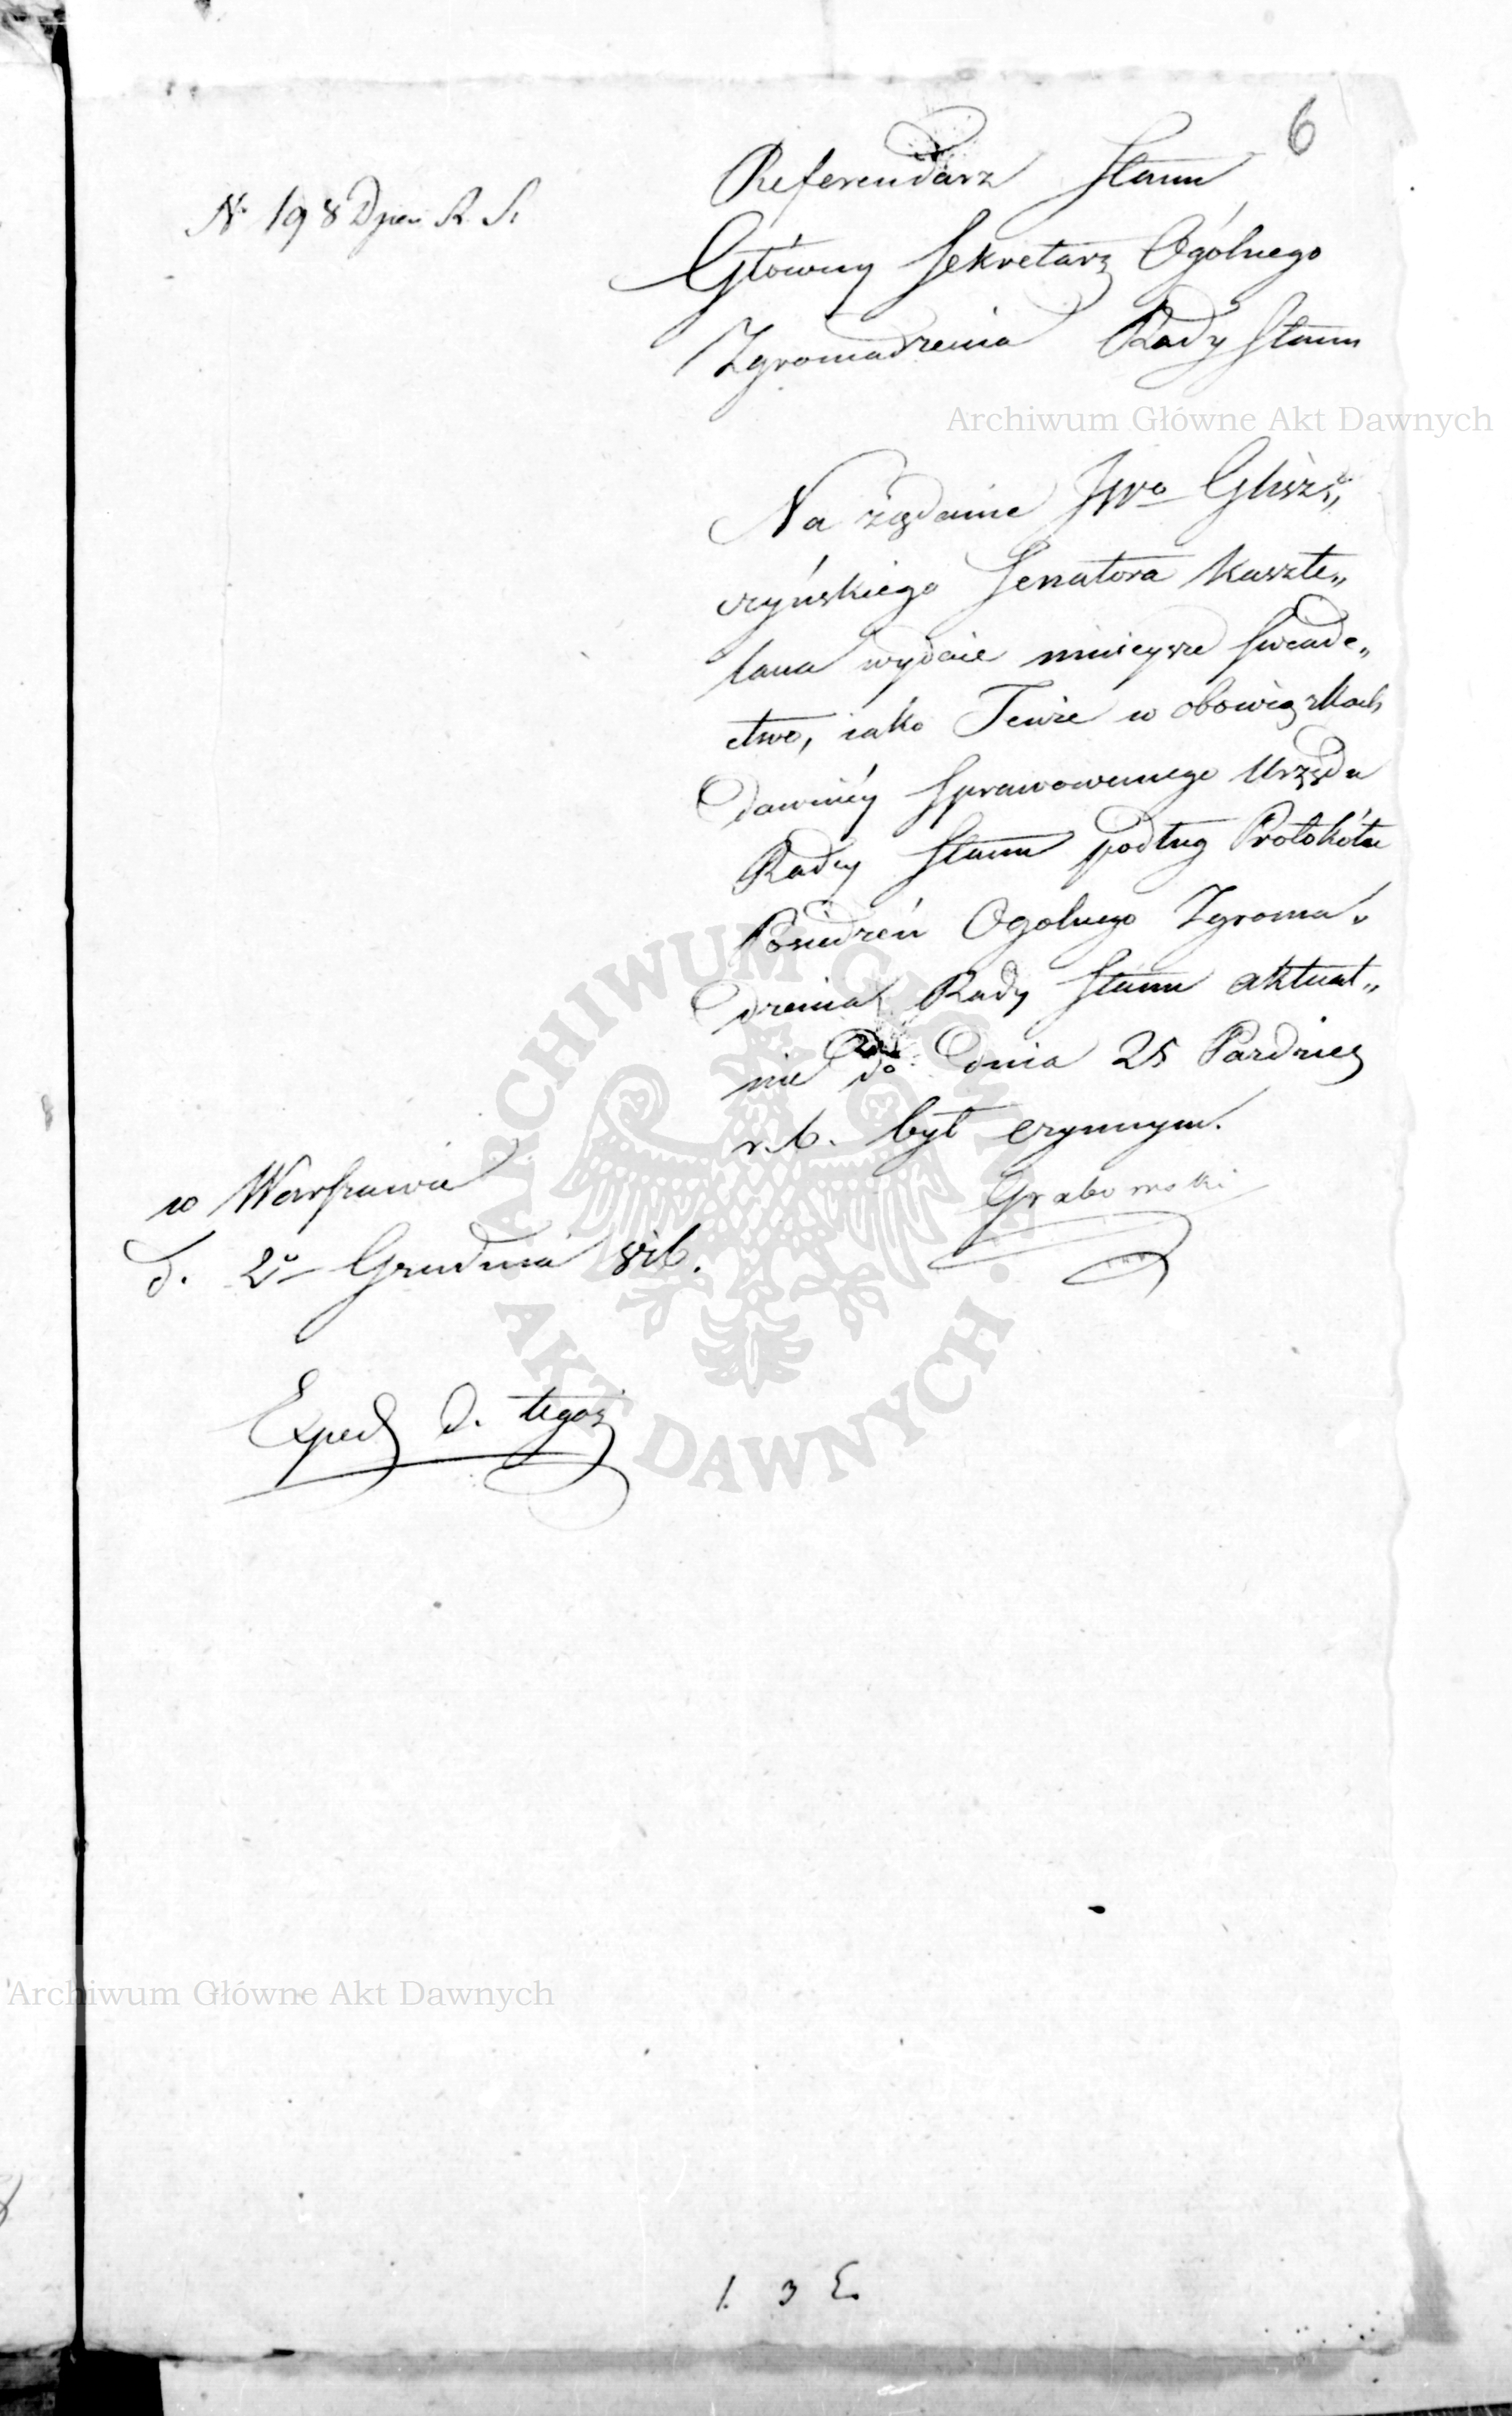 6
N. 198 Dzien. R. S.
Referendarz Stanu
Główny Sekretarz Ogólnego
Zgromadzenia Rady Stanu
Archiwum Główne Akt Dawnych
Na żądanie JWo Glisz„
czyńskiego Senatora Kaszte„
lana wydaie ninieysze świade„
ctwo, iako Tenże w obowiązkach
dawniéy sprawowanego Urzędu
Radcy Stanu podług Protokółu
Posiedzeń Ogolnego Zgroma„
dzenia Rady Stanu aktual„
nie do dnia 25 Paździer
r. b. był czynnym.
Grabowski
w Warszawie
d. 2o Grudnia
Exped d. tegoż
ARCHIWUM GŁÓWNE
AKT DAWNYCH
Archiwum Główne Akt Dawnych
1. 3